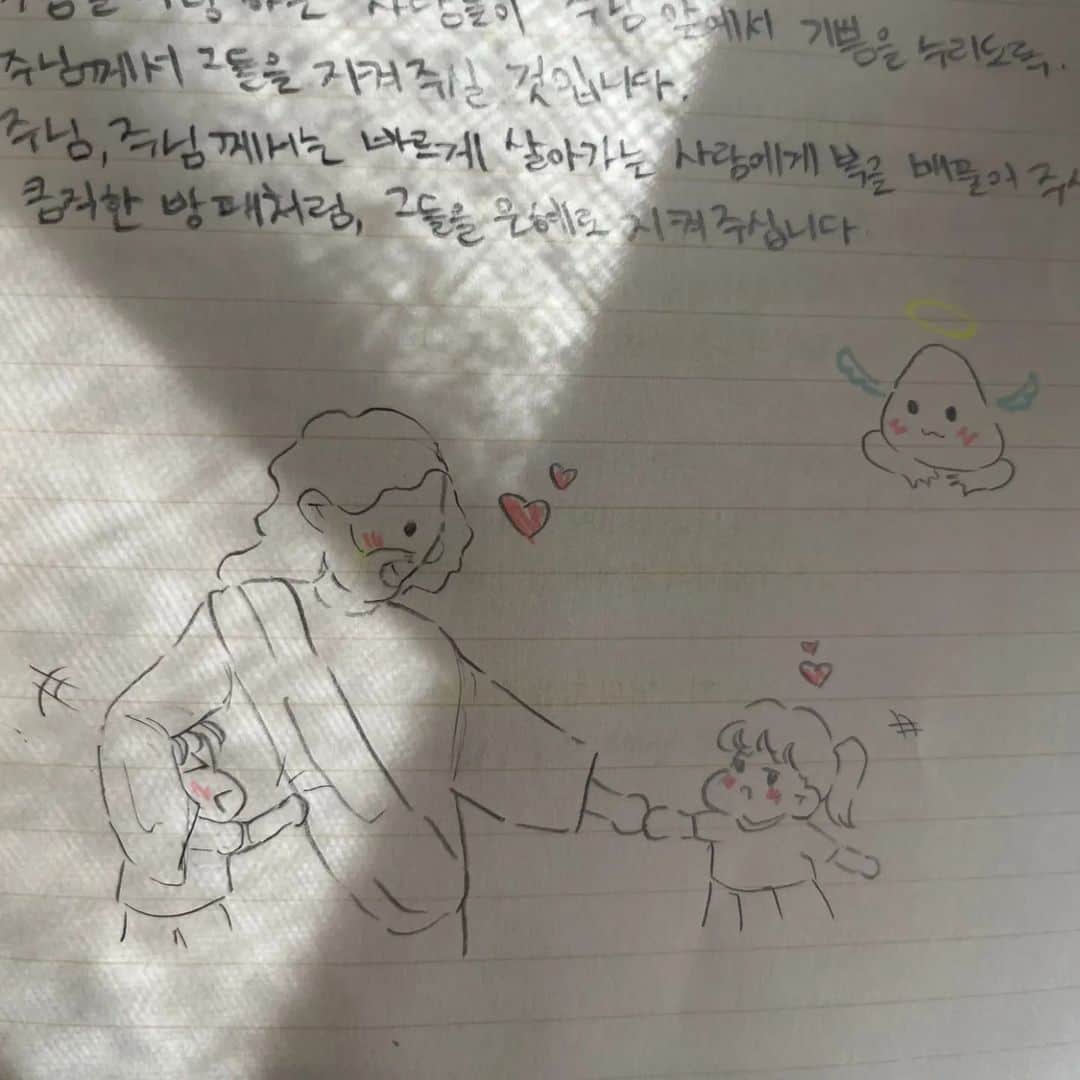 사람들이 주님 앞에서 기쁨을 누리도록,
주님께서 그들을 지켜 주실 것입니다.
주님, 주님께서는 바르게 살아가는 사람에게 복을 베풀어 주시
큼직한 방패처럼, 그들을 은혜로 지켜 주십니다.